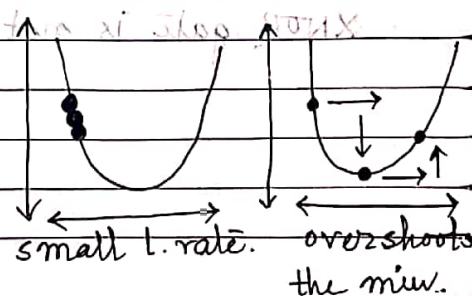 small l. rate. overshoots
the min.